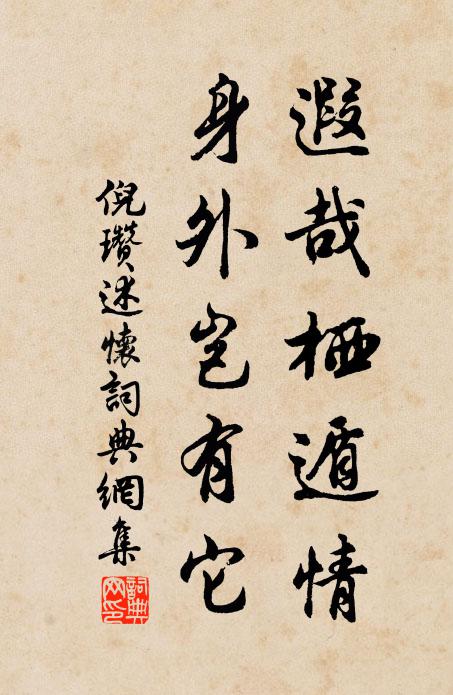 遐哉栖遁情
身外岂有它
倪瓒述懷詞典網集
詞典网印